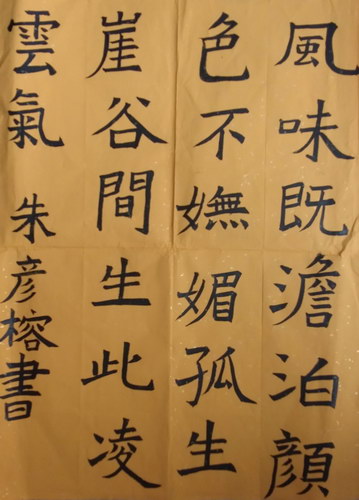 風味既澹泊顏
色不嫵媚孤生
崖谷間生此凌
雲氣 朱彦榕書